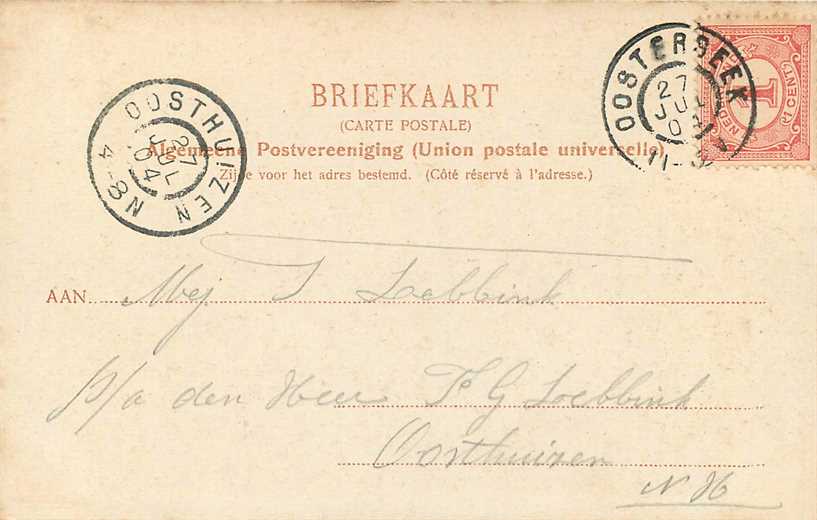 BRIEFKAART
(CARTE POSTALE)
Algemeene Postvereeniging (Union postale universelle)
Zijde voor het adres bestemd. (Côté réservé à l'adresse.)
OOSTHUIZEN
27 JUL 04
4-8 N
OOSTERBEEK
27 JUL 0
11-
NED
1 CENT
AAN Mej J Lebbink
p/a den Heer G Lebbink
Oosthuizen
N H